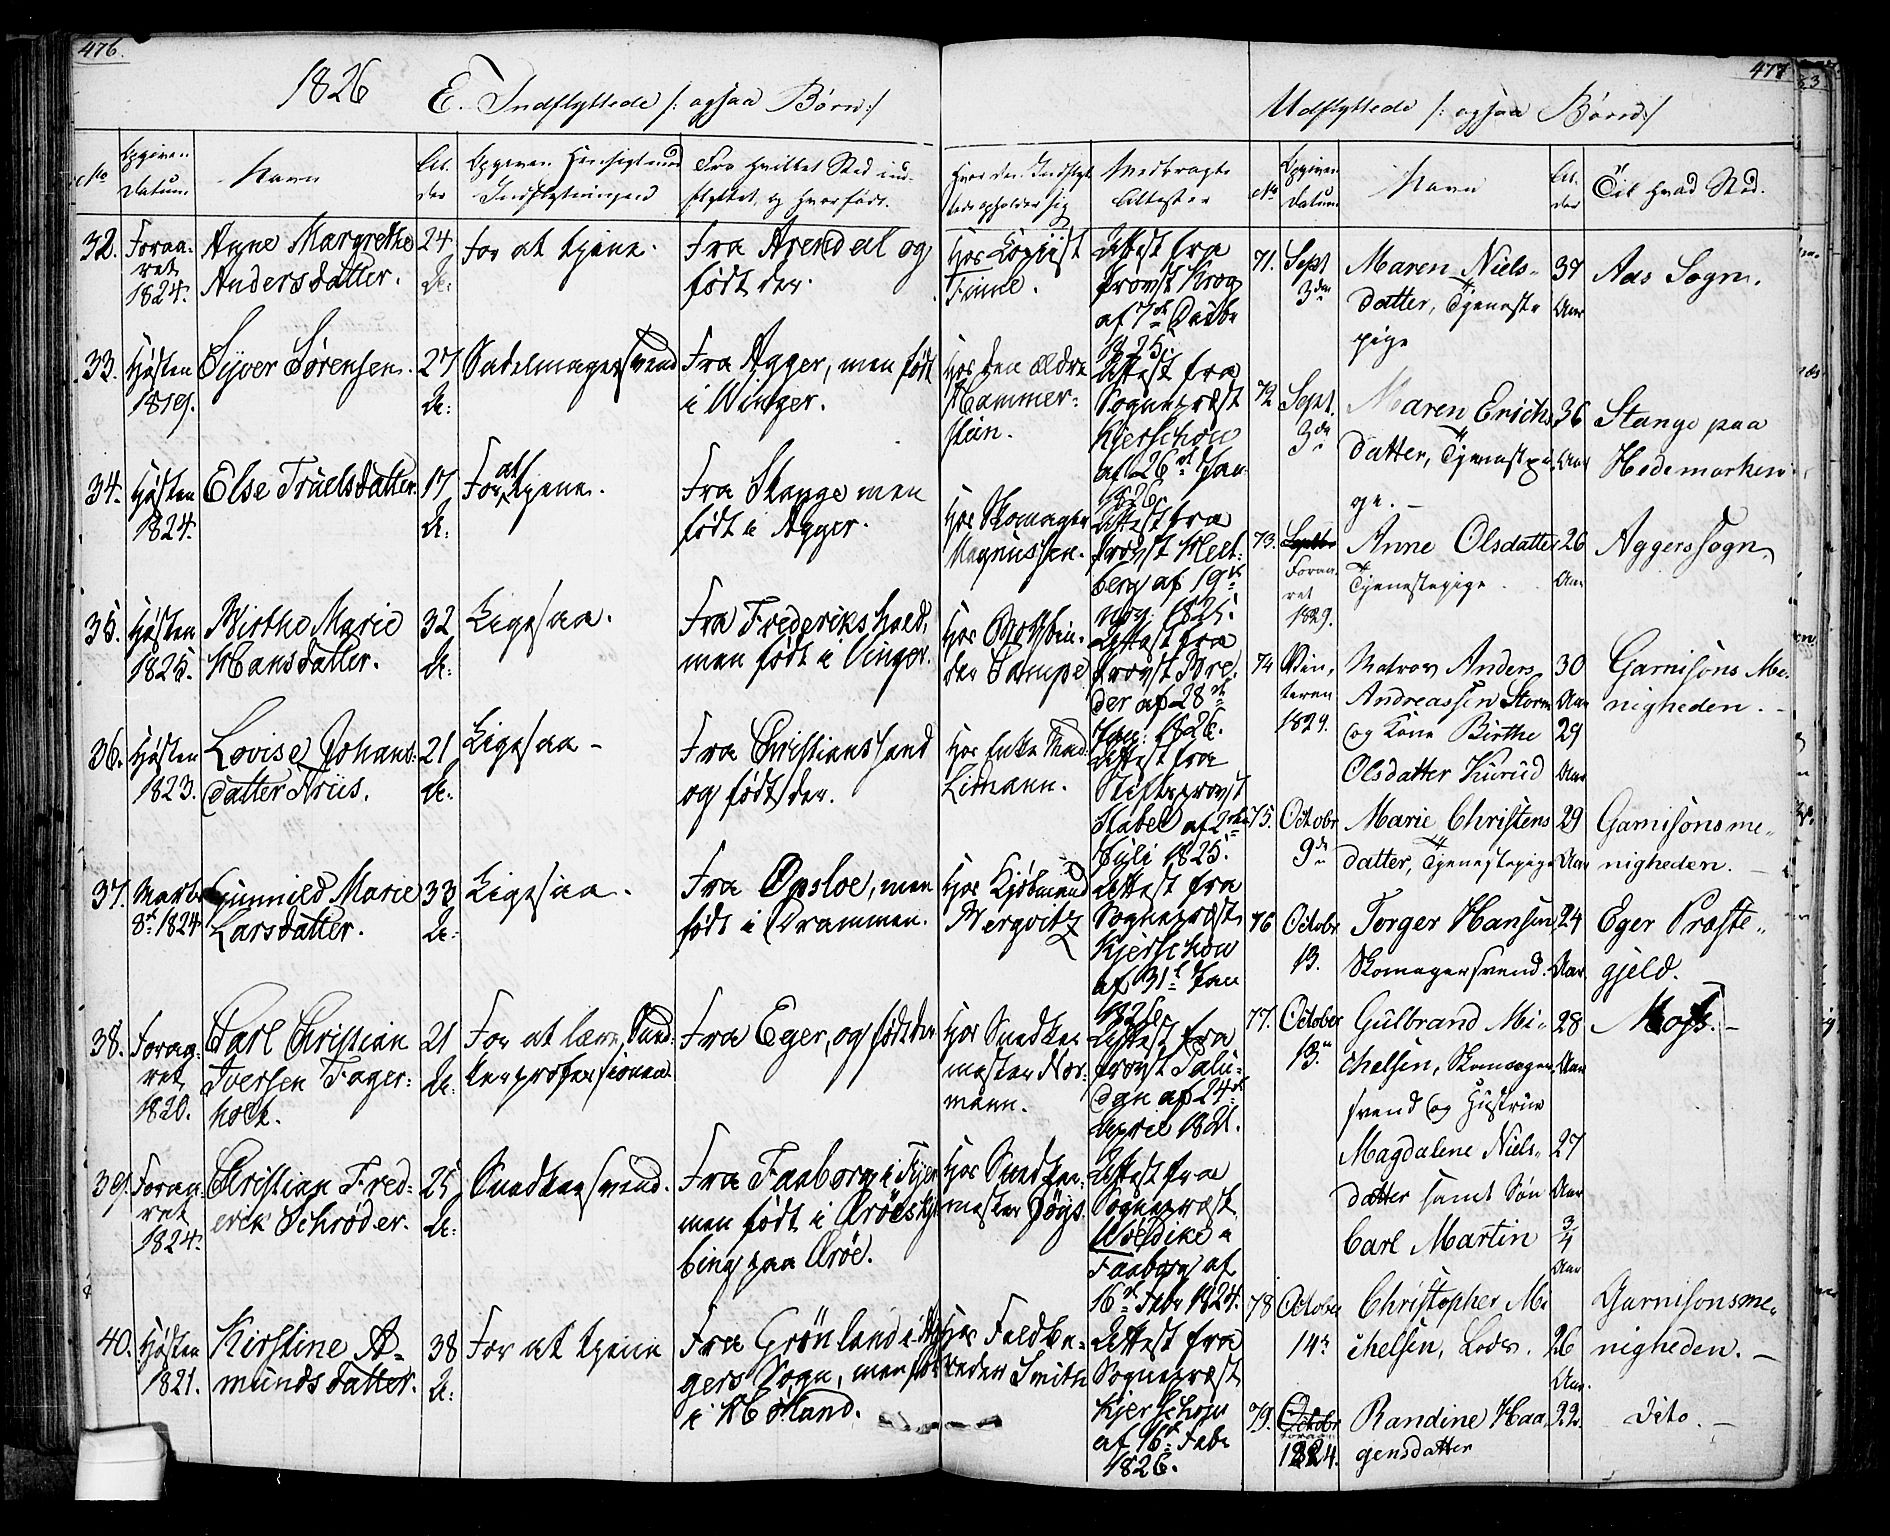 476.
1826 E. Indflyttede /: ogsaa Børn :/
No
Opgiven Datum
Navn
Al-der
Opgiven Hensigt med Indflytningen
Fra hvilket Sted ind-flyttet, og hvor født.
Hvor den Indflyt-tede opholder sig
Medbragte Attester
32. Foraa-
ret
1824.
Anne Margrethe
Andersdatter.
24
A:
For at tjene.
Fra Arendal og
født der.
Hos Copiist
Finne.
Attest fra
Provst Krog
af 7de Decbr
1825.
33. Høsten
1819.
Syver Sørensen.
27
A:
Sadelmagersvend
Fra Agger, men født
i Winger.
Hos den ældre
Hammer-
stein.
Attest fra
Sognepræst
Kjerschow
af 26de Jan
1826.
34. Høsten
1824.
Else Truelsdatter.
17
A:
For at tjene.
Fra Stange men
født i Agger.
Hos Skomager
Magnussen.
Attest fra
Provst Helt-
berg af 19de
Nov. 1825.
35. Høsten
1825.
Birthe Marie
Hansdatter.
32
A:
Ligesaa.
Fra Frederikshald,
men født i Vinger.
Hos Bogbin-
der Stampe
Attest fra
Provst Bre-
der af 28de
Jan: 1826.
36. Høsten
1823.
Lovise Johans-
datter Friis.
21
A:
Ligesaa -
Fra Christianssand
og født der.
Hos Enke Mad.
Lidmann.
Attest fra
Stiftsprovst
Stabel af 2den
Juli 1825.
37. Marts
8de 1824
Gunnild Marie
Larsdatter.
33
A:
Ligesaa.
Fra Opsloe, men
født i Drammen.
Hos Kjøbmand
Bergwitz
Attest fra
Sognepræst
Kjerschow
af 31te Jan
1826.
38. Foraa-
ret
1820.
Carl Christian
Iversen Fager-
holt.
21
A:
For at lære Sned-
kerprofessionen.
Fra Eger, og født der
Hos Snedker
mester Nor-
mann.
Attest fra
Provst Palu-
dan af 24de
April 1821.
39. Foraa-
ret
1824.
Christian Fred-
erik Schrøder.
25
A:
Snedkersvend.
Fra Faaborg i Fyen
men født i Ærøeskjø-
bing paa Ærøe.
Hos Snedker-
mester Jøys.
Attest fra
Sognepræst
Wøldike i
Faaborg af
16de Febr 1824.
40. Høsten
1821.
Kirstine A-
mundsdatter.
38
A:
For at tjene
Fra Grønland i Ag-
gers Sogn, men født
i Høland.
Hos Feldbe-
reder Smith
Attest fra
Sognepræst
Kjerschow
af 16de Febr
1826.
477
Udflyttede /: ogsaa Børn :/
No
Opgiven Datum
Navn
Al-der
Til hvad Sted.
71. Sept
3die
Maren Niels-
datter, Tjeneste
pige
37
Aar
Aas Sogn.
72 Sept.
3die
Maren Erichs
datter, Tjenestpi
ge. -
36
Aar
Stange paa
Hedemarken.
73. Septbr
Foraa-
ret
1829.
Anne Olsdatter
Tjenestepige
26
Aar
Aggers Sogn
74 Vin-
teren
1824.
Matros Anders
Andreassen Storm
og Kone Birthe
Olsdatter Kurud
30
Aar
29
Aar
Garnisons Me-
nigheden. -
75. Octobr
9de
Marie Christens
datter, Tjenestepige
29
Aar
Garnisonsme-
nigheden. -
76 Octobr
13.
Torger Hansen
Skomagersvend.
24
Aar
Eger Præste-
gjeld.
77. October
13.
Gulbrand Mi-
chelsen, Skomager
svend og Hustrue
Magdalene Niels-
datter samt Søn
Carl Martin
28
Aar
27
Aar
3/4
Aar
Moss. -
78 October
14de
Christopher Mi
chelsen, Lods.
26
Aar.
Garnisonsme-
nigheden. -
79. Octobr
Foraar
1824.
Randine Haa-
gensdatter
22.
Dito. -